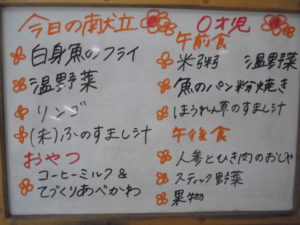 今日の献立
白身魚のフライ
温野菜
リンゴ
(末)ふのすまし汁
おやつ
コーヒーミルク&
てづくりあべかわ
0才児
午前食
米粥 温野菜
魚のパン粉焼き
ほうれん草のすまし汁
午後食
人参とひき肉のおじや
スティック野菜
果物